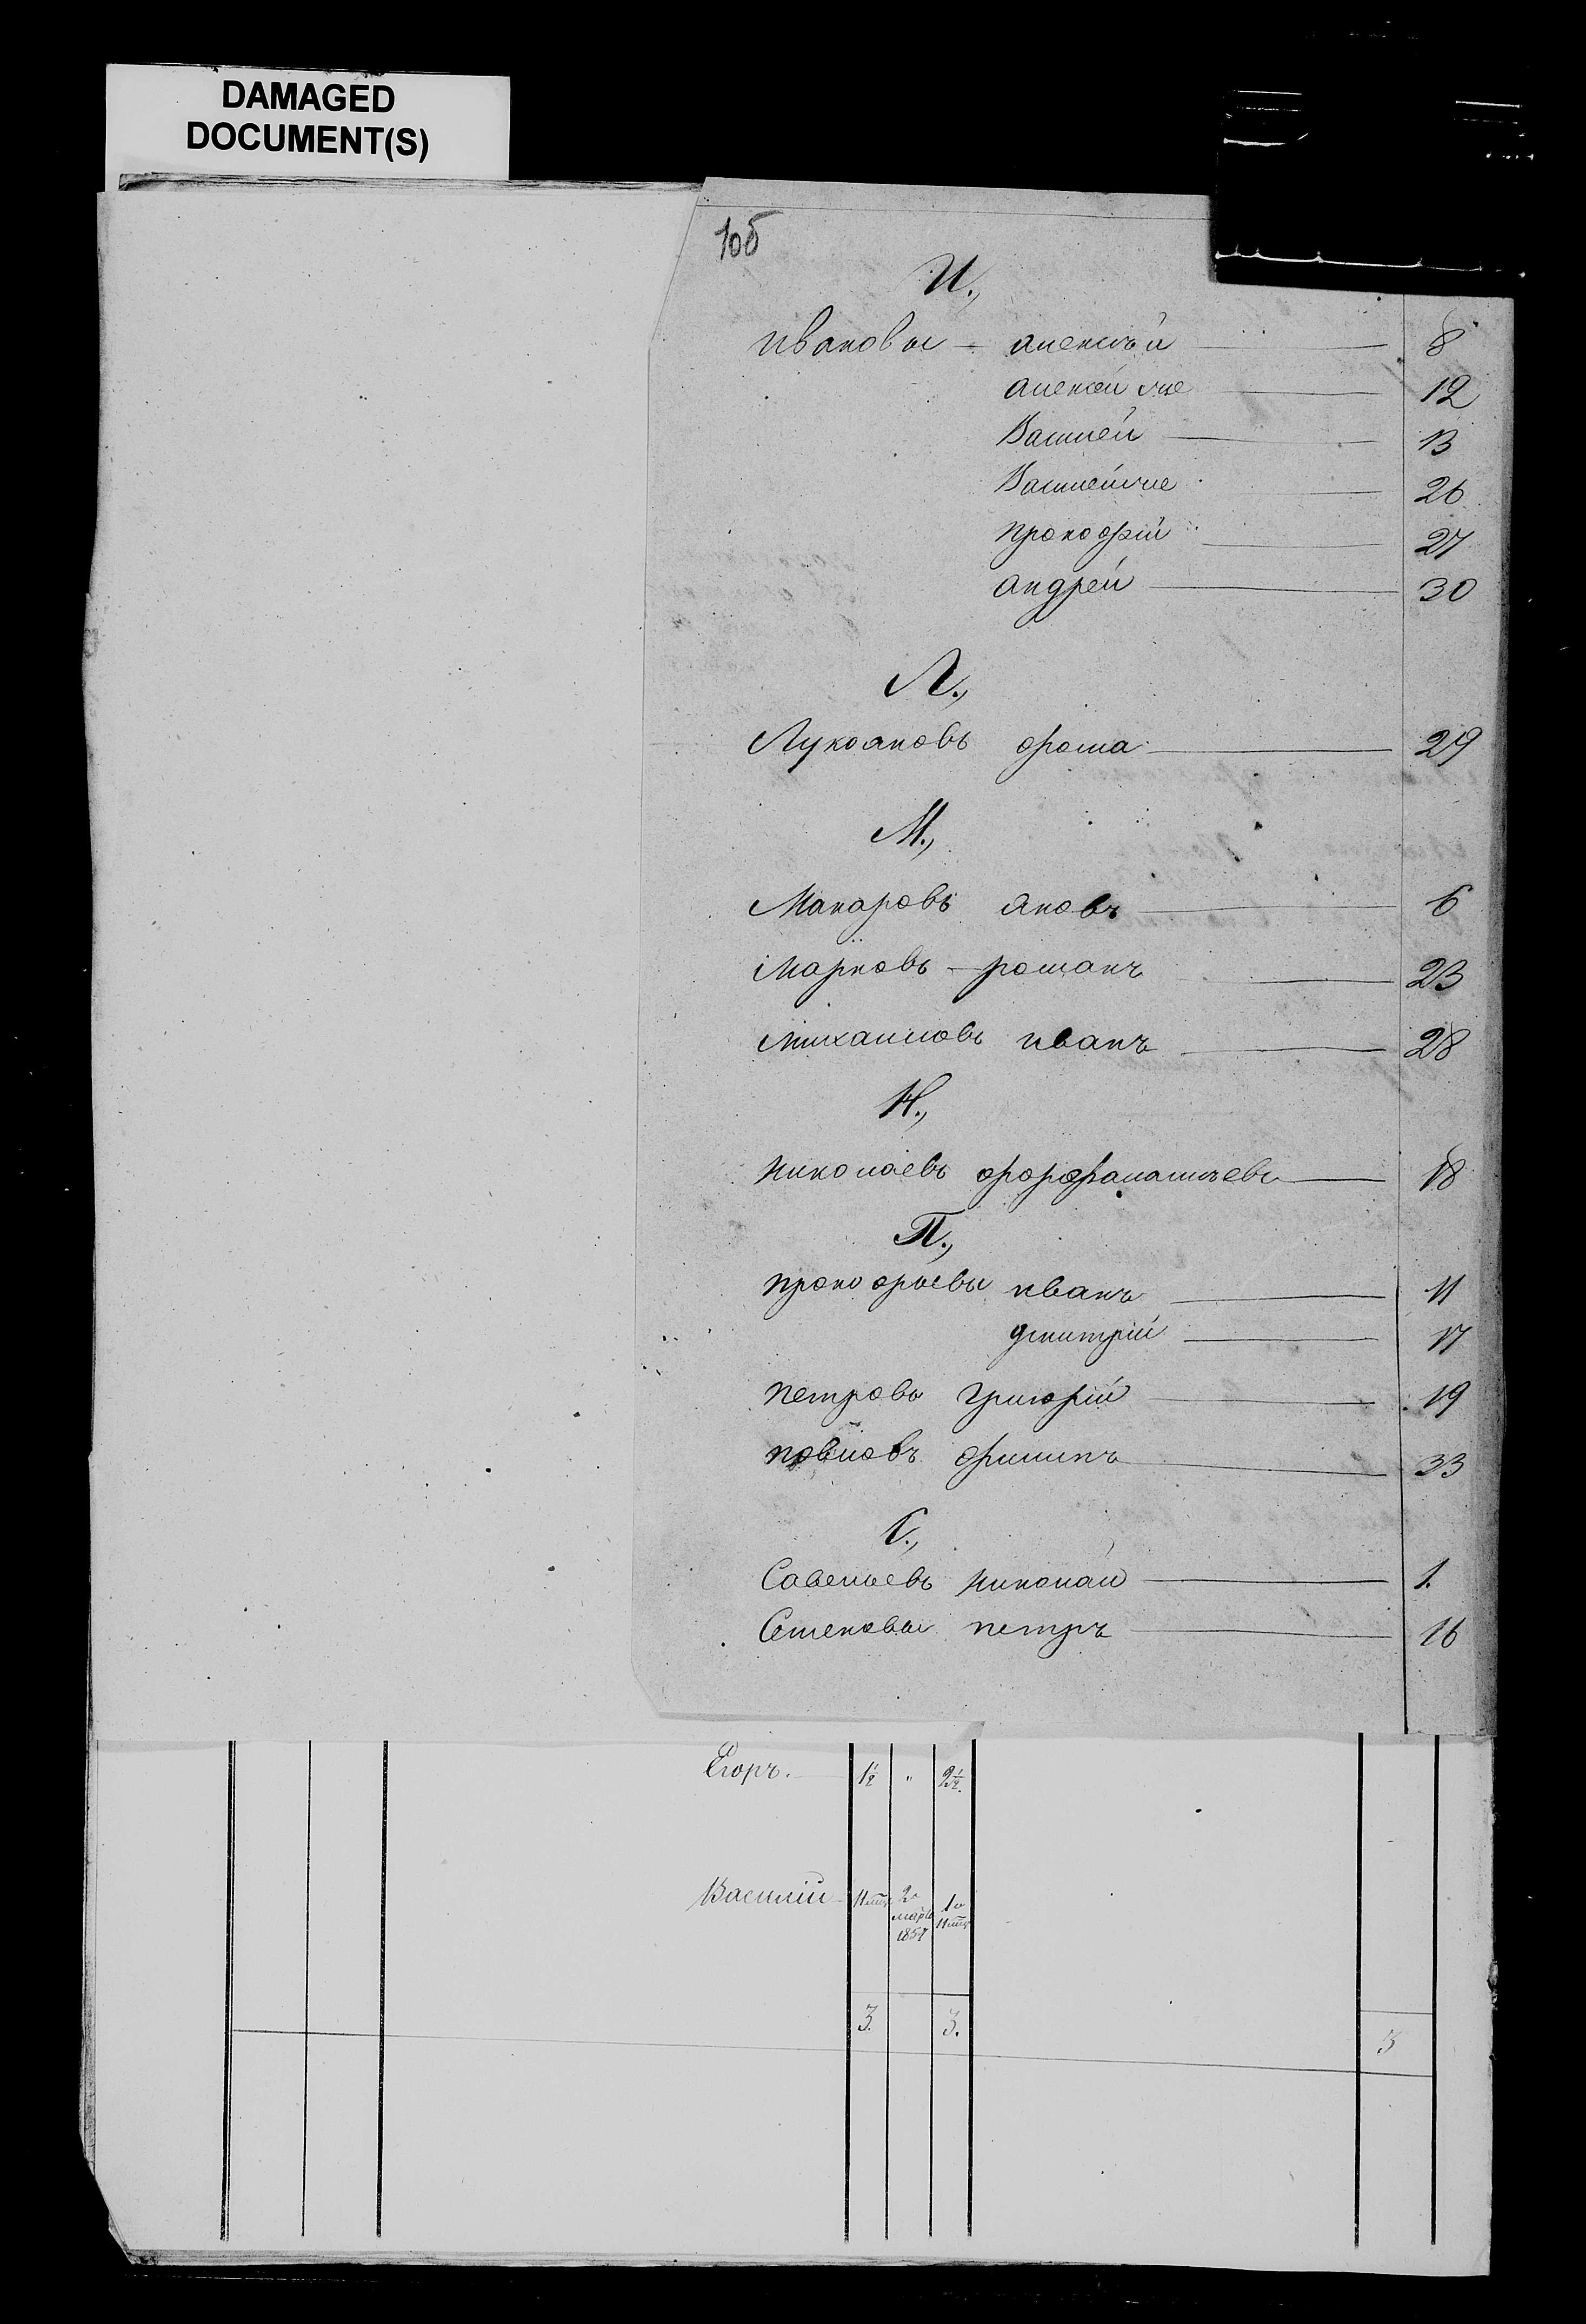 DAMAGED
DOCUMENT(S)
105
И.,
Ивановы - алексѣй 8
алексей же 12
Василей 13
Василей же 26
прокофий 27
андрей 30
Л.,
Лукояновъ фома 29
М.,
Макаровъ яковъ 6
Марковъ - романъ 23
Михаиловъ иванъ 28
Н.,
Николаевъ 18
П.,
прокофьевы иванъ 11
дмитрий 17
петровъ григорий 19
павловъ филипъ 33
С.,
Савельевъ николай 1.
Семеновы петръ 16
Егоръ. 1½ " 2½.
Василий 2о марта 1857
3. 3. 3